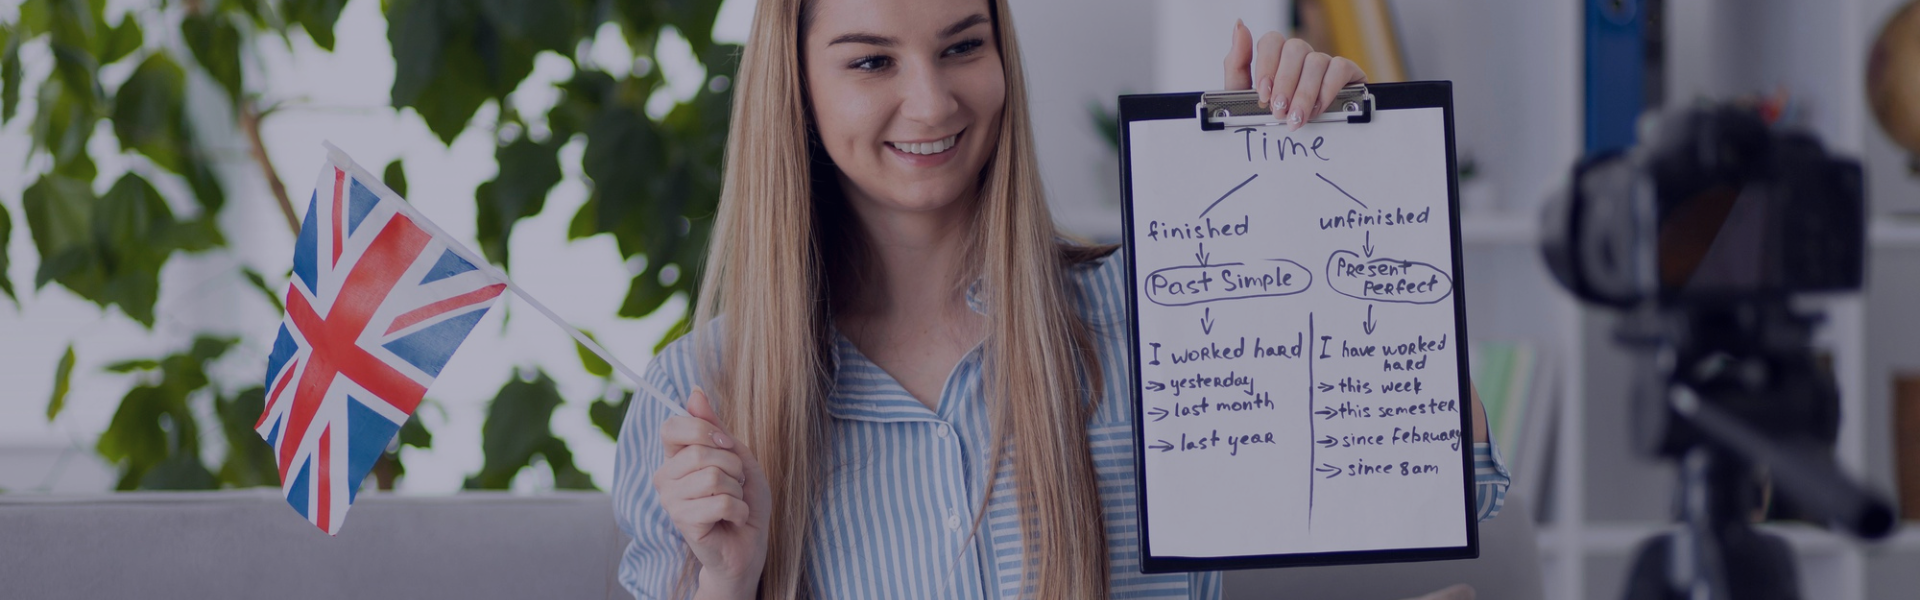 Time
finished
Past Simple
I worked hard
yesterday
last month
last year
unfinished
Present
Perfect
I have worked
hard
this week
this semester
since February
since 8am